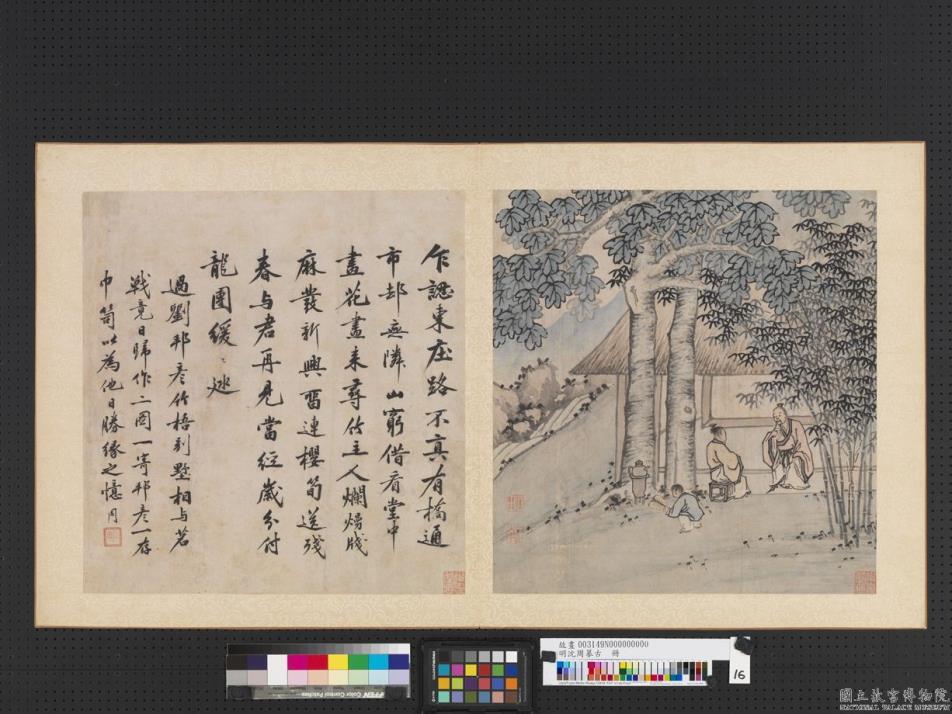 乍認東庄路不真有橋通
市却無隣山窮借看堂中
畫花盡来尋竹主人爛熳牋
麻發新興留連櫻筍送殘
春与君再見當經歲分付
龍團緩〻巡
過劉邦彦竹梧别墅相与茗
戰竟日歸作二圖一寄邦彦一存
巾笥以為他日勝緣之憶周
故畫 003149N000000000
明沈周摹古 冊
16
國立故宮博物院
NATIONAL PALACE MUSEUM